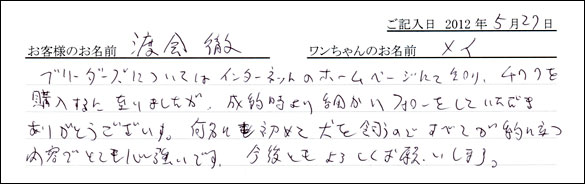 ご記入日 2012年5月27日
お客様のお名前 渡会 徹 ワンちゃんのお名前 メイ
ブリーダーズについてはインターネットのホームページにて知り、
購入するに至りましたが、成約時より細かいフォローをしていただき
ありがとうございます。何分にも初めて犬を飼うのですべてが役に立つ
内容でとても心強いです。今後ともよろしくお願いします。